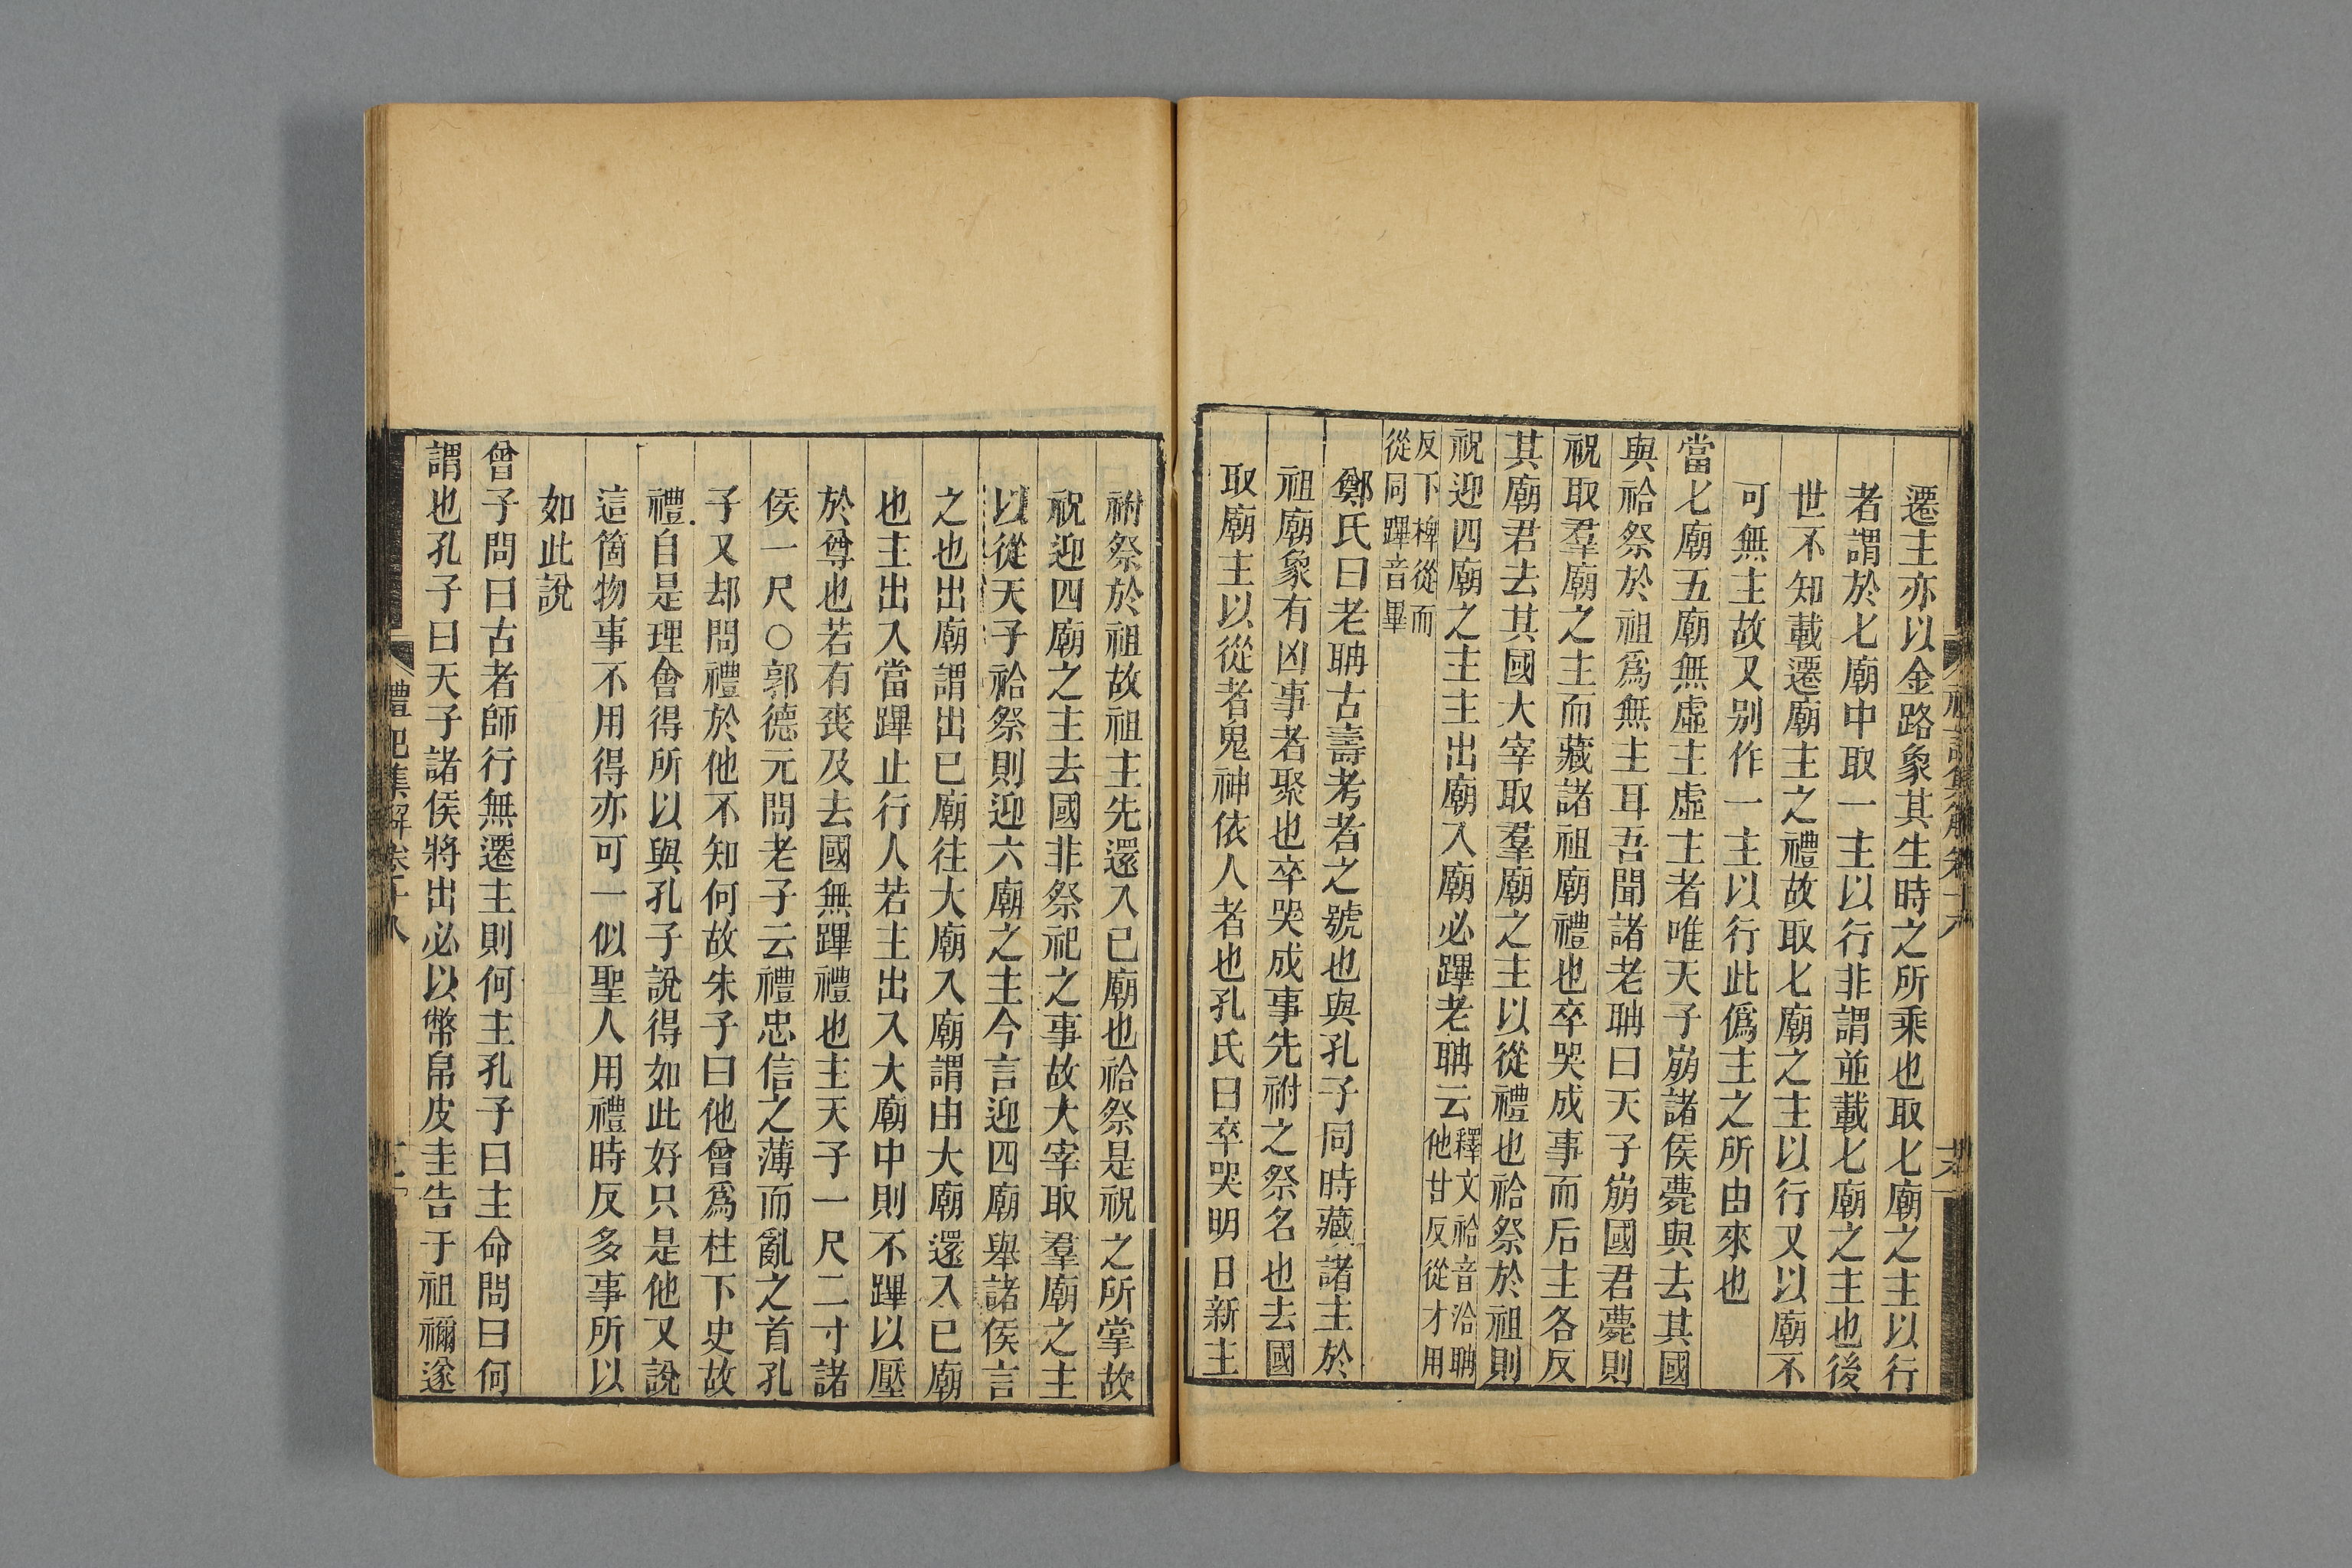 遷主亦以金路象其生時之所乘也取七廟之主以行
者謂於七廟中取一主以行非謂並載七廟之主也後
世不知載遷廟主之禮故取七廟之主以行又以廟不
可無主故又别作一主以行此僞主之所由來也
當七廟五廟無虛主虛主者唯天子崩諸侯薨與去其國
與祫祭於祖爲無主耳吾聞諸老聃曰天子崩國君薨則
祝取羣廟之主而藏諸祖廟禮也卒哭成事而后主各反
其廟君去其國大宰取羣廟之主以從禮也祫祭於祖則
祝迎四廟之主主出廟入廟必蹕老聃云釋文祫音洽聃
他甘反從才用
反下椑從而
從同蹕音畢
鄭氏曰老聃古壽考者之號也與孔子同時藏諸主於
祖廟象有凶事者聚也卒哭成事先祔之祭名也去國
取廟主以從者鬼神依人者也孔氏曰卒哭明日新主
祔祭於祖故祖主先還入已廟也祫祭是祝之所掌故
祝迎四廟之主去國非祭祀之事故大宰取羣廟之主
以從天子祫祭則迎六廟之主今言迎四廟舉諸侯言
之也出廟謂出已廟往大廟入廟謂由大廟還入已廟
也主出入當蹕止行人若主出入大廟中則不蹕以壓
於尊也若有喪及去國無蹕禮也主天子一尺二寸諸
侯一尺○郭德元問老子云禮忠信之薄而亂之首孔
子又却問禮於他不知何故朱子曰他曾爲柱下史故
禮自是理會得所以與孔子說得如此好只是他又說
這箇物事不用得亦可一似聖人用禮時反多事所以
如此說
曾子問曰古者師行無遷主則何主孔子曰主命問曰何
謂也孔子曰天子諸侯將出必以幣帛皮圭告于祖禰遂
禮記集解卷十八